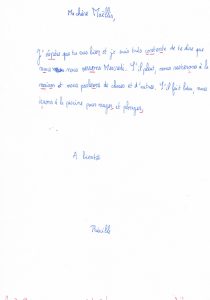 Ma chère Maëlle,
J'espère que tu vas bien et je suis très contente de te dire que
nous nous verrons Mercredi. S'il pleut, nous resterons à la
maison et nous parlerons de choses et d'autres. S'il fait beau, nous
irons à la piscine pour nager et plonger.
A bientôt